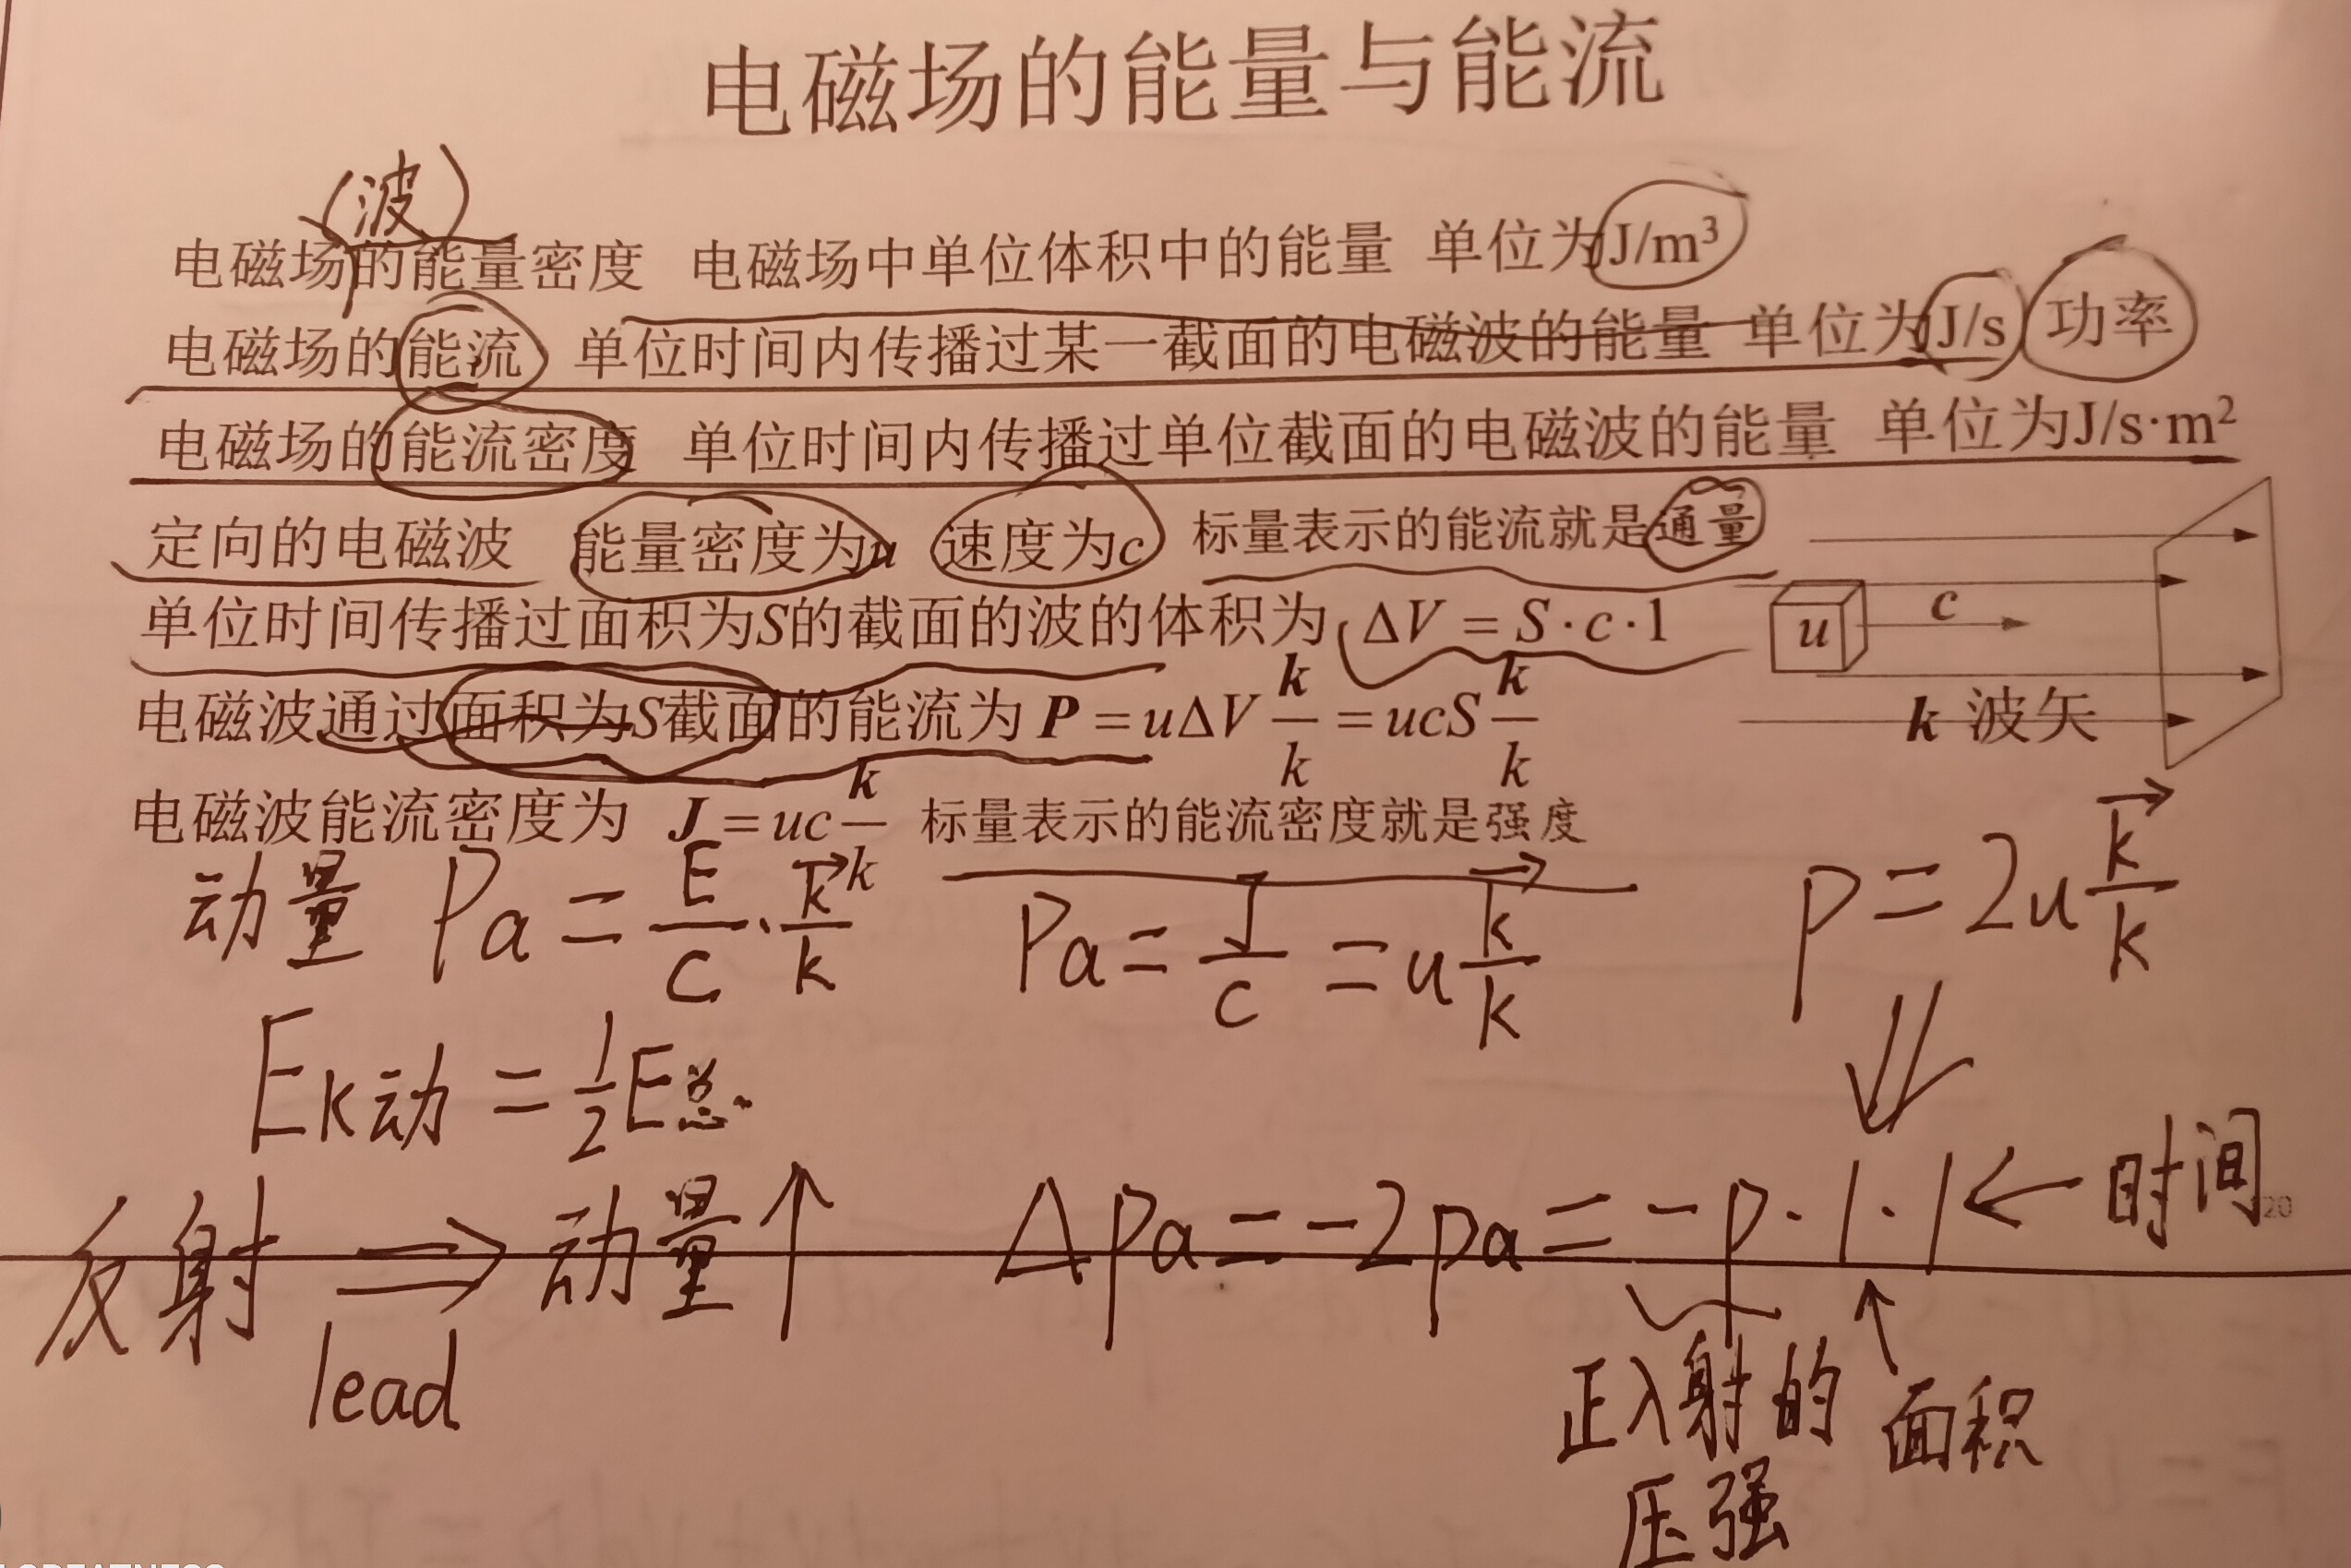 电磁场的能量与能流
(波)
电磁场的能量密度 电磁场中单位体积中的能量 单位为J/m³
电磁场的能流 单位时间内传播过某一截面的电磁波的能量 单位为J/s 功率
电磁场的能流密度 单位时间内传播过单位截面的电磁波的能量 单位为J/s·m²
定向的电磁波 能量密度为u 速度为c 标量表示的能流就是通量
单位时间传播过面积为S的截面的波的体积为 ΔV = S·c·1
u c
电磁波通过面积为S截面的能流为 P = uΔV k/k = ucS k/k
k 波矢
电磁波能流密度为 J = uc k/k 标量表示的能流密度就是强度
动量 Pa = E/c · k⃗/k Pa = J/c = u k⃗/k P = 2u k⃗/k
Ek动 = 1/2 E总
反射 ⇒ 动量↑ ΔPa = -2Pa = -P·1·1 ← 时间
20
lead
正入射的 面积
压强